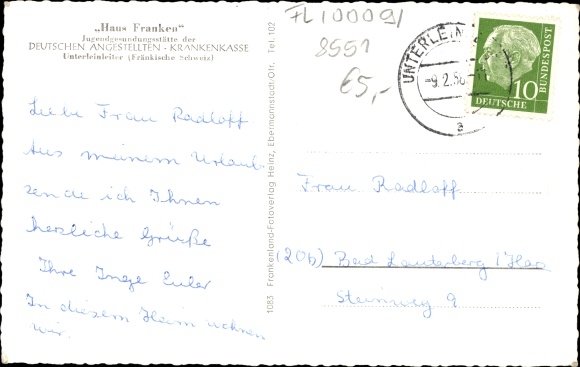 „Haus Franken"
Jugendgesundungsstätte der
DEUTSCHEN ANGESTELLTEN - KRANKENKASSE
Unterleinleiter (Fränkische Schweiz)
Liebe Frau Radloff
Aus meinem Urlaub
sende ich Ihnen
herzliche Grüße
Ihre Inge Euler
In diesem Heim wohnen
wir.
1083 Frankenland-Fotoverlag Heinz, Ebermannstadt-Ofr. Tel. 102
FL 100091
8551
€5,-
UNTERLEIN
-9.2.56
a
10
DEUTSCHE BUNDESPOST
Frau Radloff
(20b) Bad Lauterberg / Harz
Steinweg 9